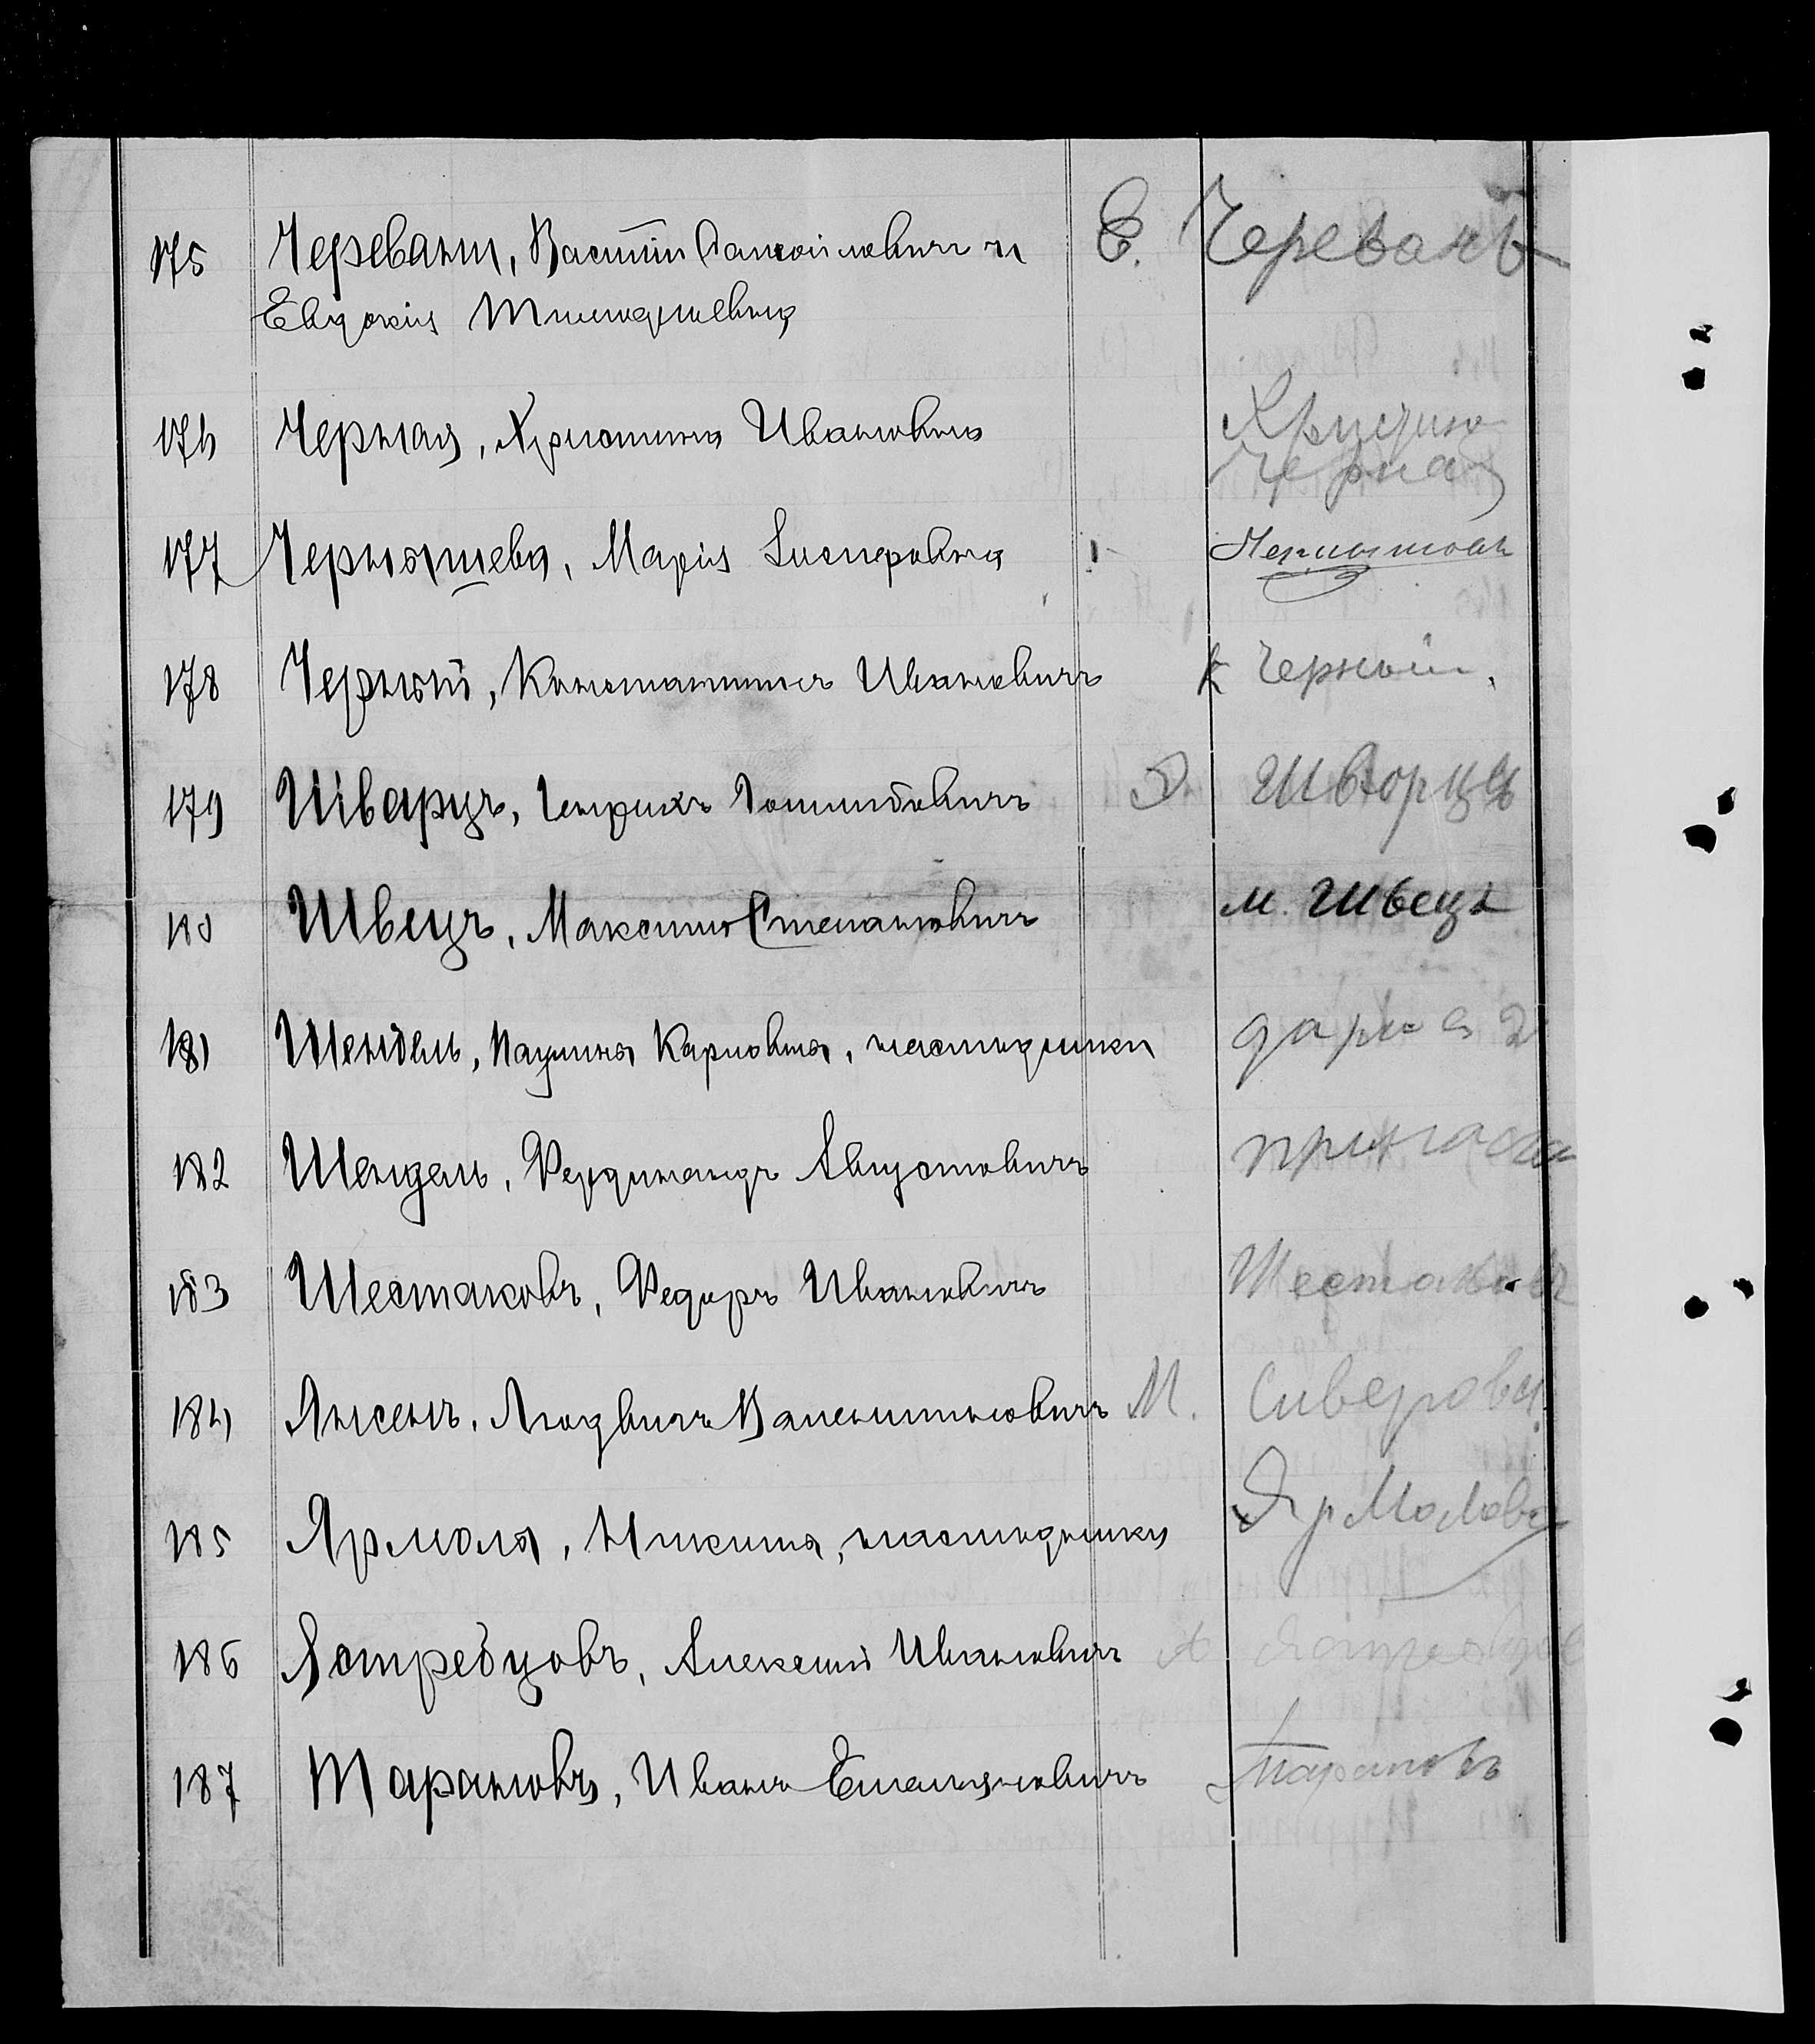 175 Череваш, Василій Самойловичъ и Е. Черевань
Евдокія Тимофѣевна
176 Черная, Христина Ивановна Христина
Черная
177 Чернышева, Марія
178 Черный, Константинъ Ивановичъ К Черный.
179 Шварцъ, Генрихъ Шворцъ
180 Швецъ, Максимъ Степановичъ М. Швецъ
181 Шендель, Паулина Карловна, наслѣдники
182 Шендель, Фердинандъ Августовичъ
183 Шестаковъ, Федоръ Ивановичъ Шестаковъ
184 Янсенъ, Людвигъ Валентиновичъ М. Сиверова
185 Ярмола, Никита, наслѣдники Ярмолова
186 Ястребцовъ, Алексѣй Ивановичъ А
187 Тарановъ, Иванъ Емельяновичъ Тарановъ